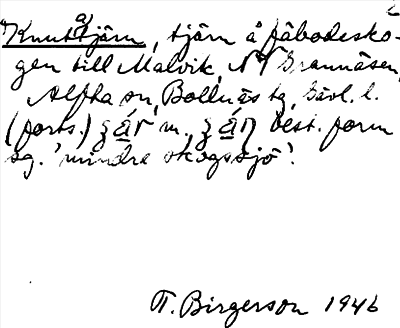 Knuttjärn, tjärn å fäbodesko-
gen till Malvik, NV Grannäsen,
Alfta sn, Bollnäs tg, Gävl. l.
(forts.) m., best. form
sg. 'mindre skogssjö'.
T. Birgerson 1946